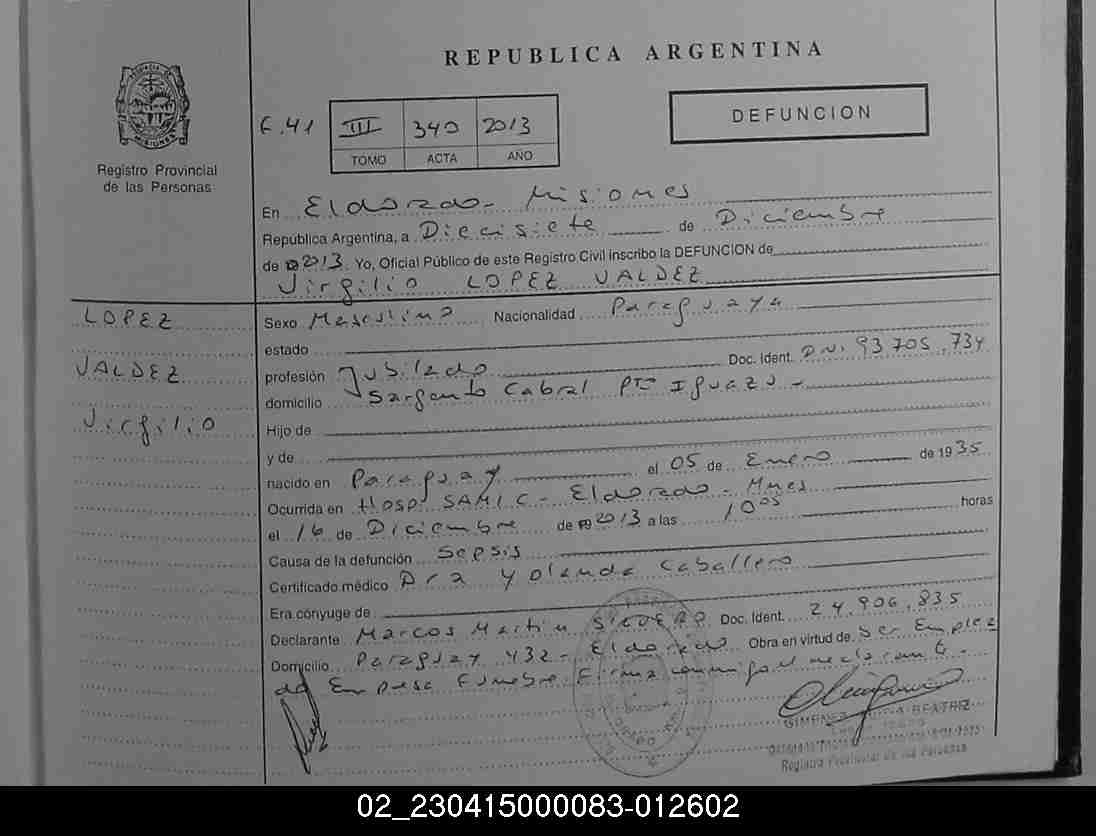 REPUBLICA ARGENTINA
PROVINCIA DE
MISIONES
Registro Provincial
de las Personas
F.41 III 340 2013
TOMO ACTA AÑO
DEFUNCION
En Eldorado - Misiones
República Argentina, a Diecisiete de Diciembre
de 2013. Yo, Oficial Público de este Registro Civil inscribo la DEFUNCION de
Virgilio LOPEZ VALDEZ
LOPEZ
VALDEZ
Virgilio
Sexo Masculino Nacionalidad Paraguaya
estado
profesión Jubilado Doc. Ident. DNI. 93 705.734
domicilio Sargento Cabral Pto Iguazu -
Hijo de
y de
nacido en Paraguay el 05 de Enero de 1935
Ocurrida en Hosp SAMIC - Eldorado - Mnes
el 16 de Diciembre de 2013 a las 10 05 horas
Causa de la defunción Sepsis
Certificado médico Dra Yolanda Caballero
Era cónyuge de
Declarante Marcos Martin Doc. Ident. 24.906.835
Domicilio Paraguay 432 - Eldorado Obra en virtud de Ser Emplea
do Empresa Funebre Firma conmigo el declarante -
BEATRIZ
Registro Provincial de las Personas
02_230415000083-012602